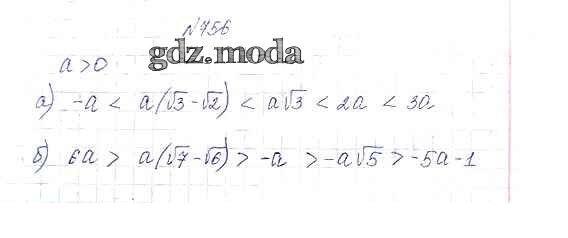 №756
gdz.moda
a>0
а) -a < a(√3-√2) < a√3 < 2a < 3a
б) 6a > a(√7-√6) > -a > -a√5 > -5a-1